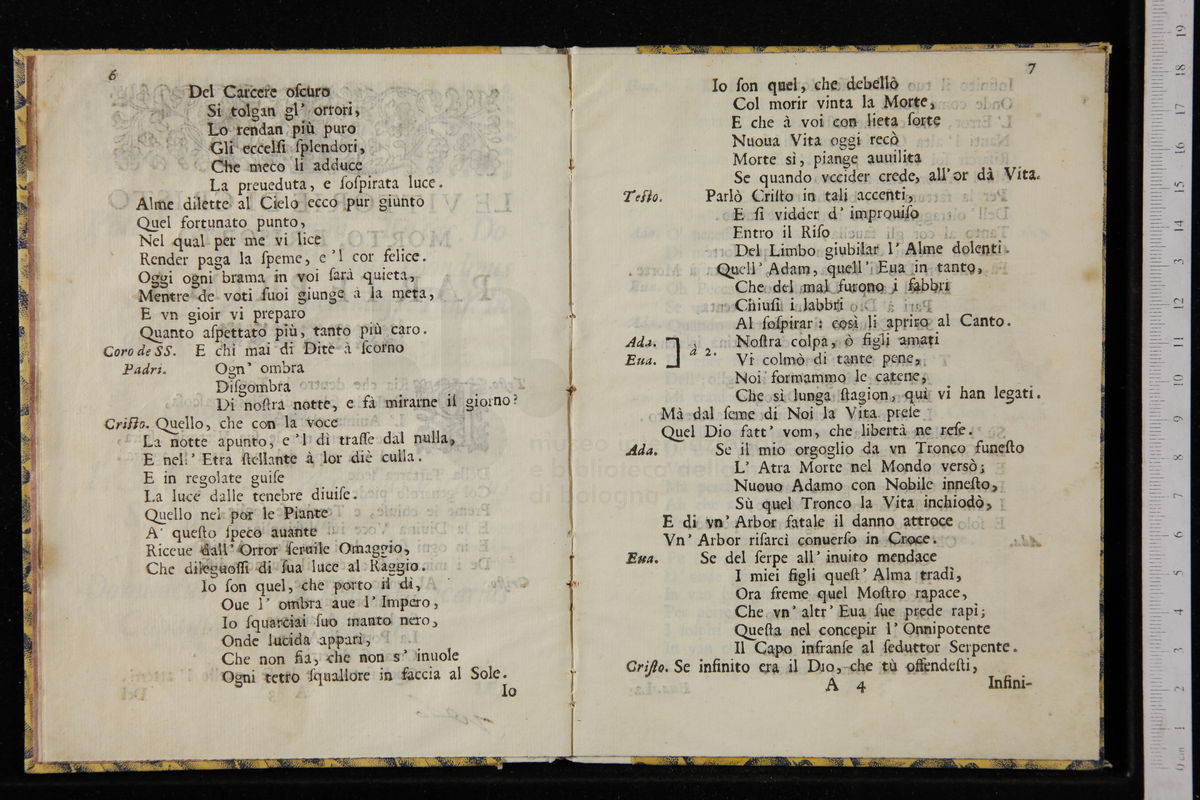 6
Del Carcere oſcuro
Si tolgan gl' orrori,
Lo rendan più puro
Gli eccelſi ſplendori,
Che meco li adduce
La preueduta, e ſoſpirata luce.
Alme dilette al Cielo ecco pur giunto
Quel fortunato punto,
Nel qual per me vi lice
Render paga la ſpeme, e 'l cor felice.
Oggi ogni brama in voi ſarà quieta,
Mentre de voti ſuoi giunge à la meta,
E vn gioir vi preparo
Quanto aſpettato più, tanto più caro.
Coro de SS. E chi mai di Dite à ſcorno
Padri. Ogn' ombra
Diſgombra
Di noſtra notte, e fà mirarne il giorno?
Criſto. Quello, che con la voce
La notte apunto, e 'l dì traſſe dal nulla,
E nell' Etra ſtellante à lor diè culla.
E in regolate guiſe
La luce dalle tenebre diuiſe.
Quello nel por le Piante
A' queſto ſpeco auante
Riceue dall' Orror ſeruile Omaggio,
Che dileguoſſi di ſua luce al Raggio.
Io ſon quel, che porto il dì,
Oue l' ombra aue l' Impero,
Io ſquarciai ſuo manto nero,
Onde lucida apparì,
Che non fia, che non s' inuole
Ogni tetro ſquallore in faccia al Sole.
Io
7
Io ſon quel, che debellò
Col morir vinta la Morte,
E che à voi con lieta ſorte
Nuoua Vita oggi recò
Morte sì, piange auuilita
Se quando vccider crede, all'or dà Vita.
Teſto. Parlò Criſto in tali accenti,
E ſi vidder d' improuiſo
Entro il Riſo
Del Limbo giubilar l' Alme dolenti.
Quell' Adam, quell' Eua in tanto,
Che del mal furono i fabbri
Chiuſi i labbri
Al ſoſpirar: così li apriro al Canto.
Ada. ] à 2. Noſtra colpa, ò figli amati
Eua. Vi colmò di tante pene,
Noi formammo le catene,
Che sì lunga ſtagion, quì vi han legati.
Mà dal ſeme di Noi la Vita preſe
Quel Dio fatt' vom, che libertà ne reſe.
Ada. Se il mio orgoglio da vn Tronco funeſto
L' Atra Morte nel Mondo versò;
Nuouo Adamo con Nobile inneſto,
Sù quel Tronco la Vita inchiodò,
E di vn' Arbor fatale il danno attroce
Vn' Arbor riſarcì conuerſo in Croce.
Eua. Se del ſerpe all' inuito mendace
I miei figli queſt' Alma tradì,
Ora freme quel Moſtro rapace,
Che vn' altr' Eua ſue prede rapì;
Queſta nel concepir l' Onnipotente
Il Capo infranſe al ſeduttor Serpente.
Criſto. Se infinito era il Dio, che tù offendeſti,
A 4 Infini-
museo in
e biblioteca della
di bologna
0 cm 1 2 3 4 5 6 7 8 9 10 11 12 13 14 15 16 17 18 19